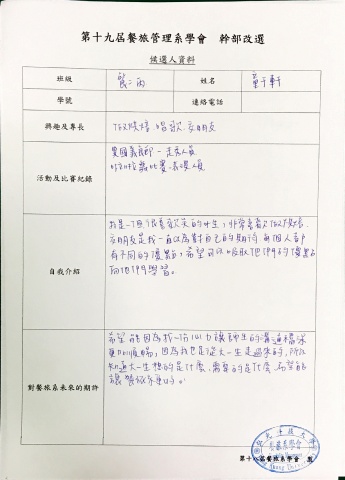 第十九屆餐旅管理系學會 幹部改選
候選人資料
班級 餐二丙 姓名 童于軒
學號 連絡電話
興趣及專長 做烘焙、唱歌、交朋友
活動及比賽紀錄
自我介紹
我是一個很喜歡笑的女生,非常喜歡做烘焙、
交朋友是我一直以為對自己的期待,每個人都
有不同的優點,希望可以吸取他們的優點
向他們學習。
對餐旅系未來的期許
希望能因為我一份心力讓師生的溝通環節
更加順暢,因為我也是從大一生走過來的,所以
知道大一生想的是什麼,需要的是什麼,希望能
讓餐旅系更好。
第十八屆餐旅系學會 製